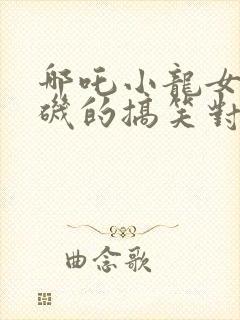 哪吒小龍女
磯的搞笑對
曲念歌